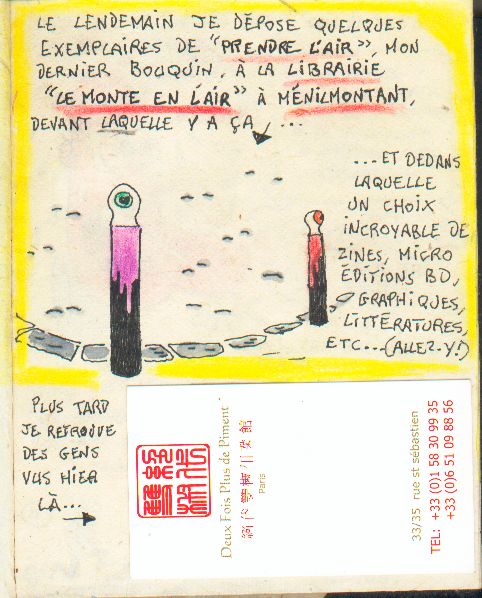 LE LENDEMAIN JE DÉPOSE QUELQUES
EXEMPLAIRES DE "PRENDRE L'AIR", MON
DERNIER BOUQUIN, À LA LIBRAIRIE
"LE MONTE EN L'AIR" À MÉNILMONTANT,
DEVANT LAQUELLE Y A ÇA ...
...ET DEDANS
LAQUELLE
UN CHOIX
INCROYABLE DE
ZINES, MICRO
ÉDITIONS BD,
GRAPHIQUES,
LITTÉRATURES,
ETC...(ALLEZ-Y!)
PLUS TARD
JE RETROUVE
DES GENS
VUS HIER
LÀ...
Deux Fois Plus de Piment
Paris
33/35 rue st sébastien
TEL: +33 (0)1 58 30 99 35
+33 (0)6 51 09 88 56